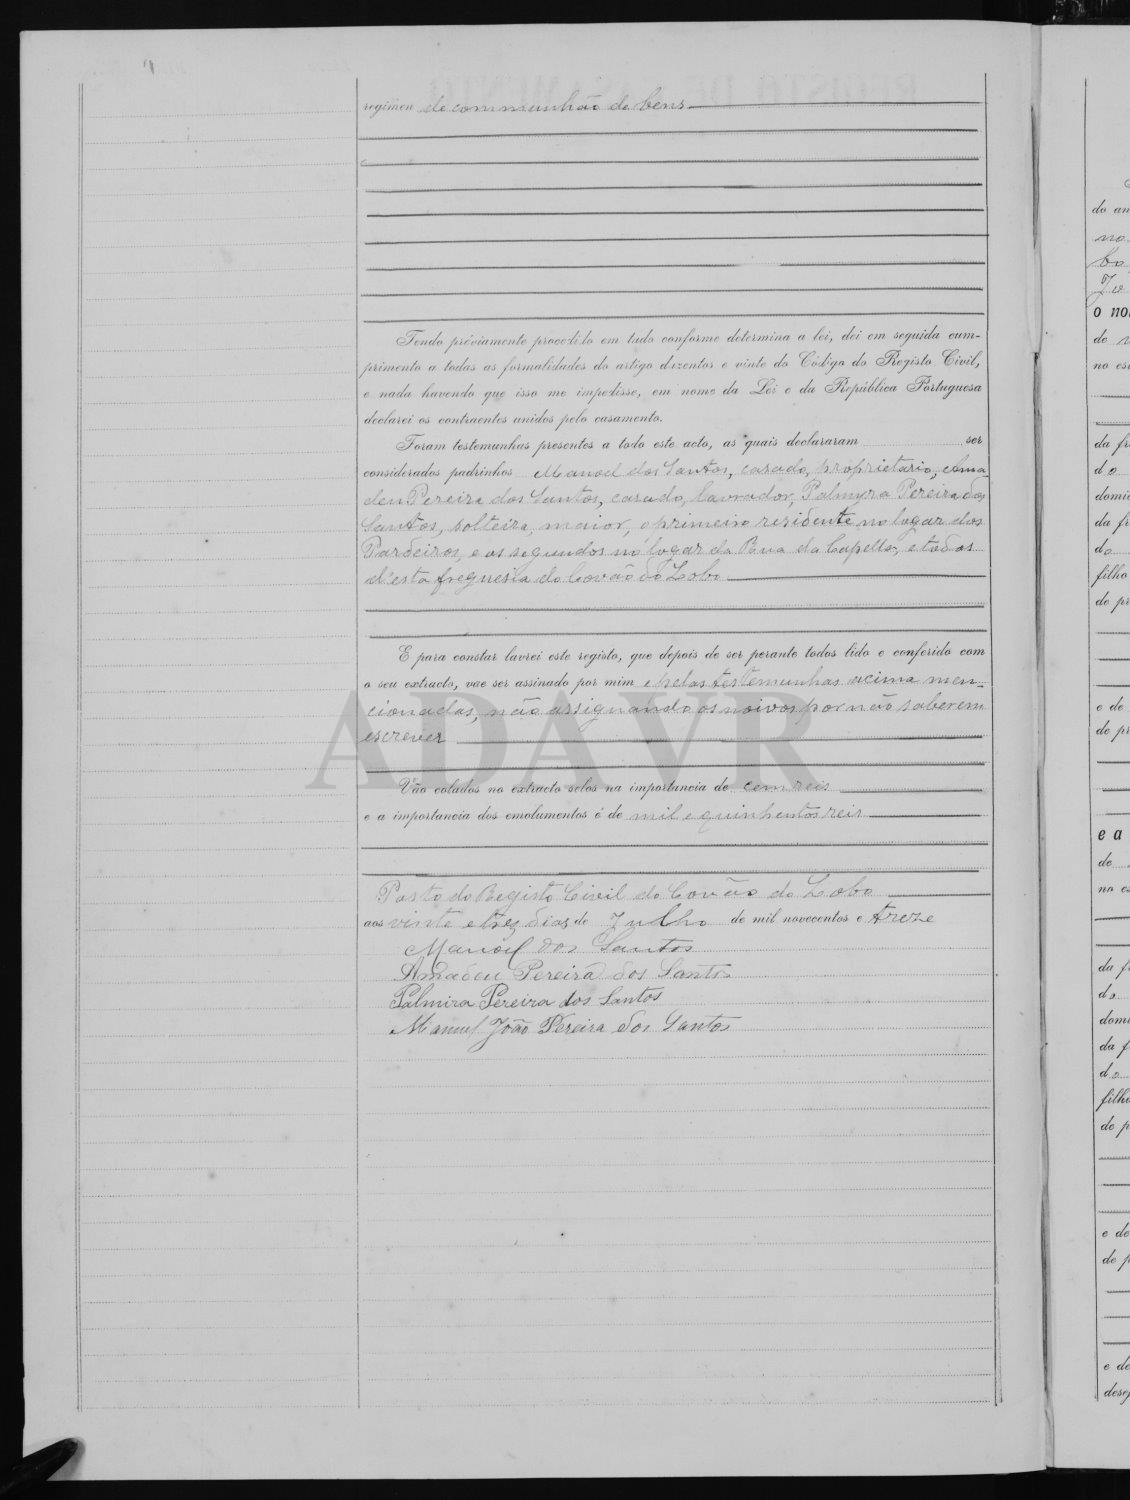 regimen de communhão de bens
Tendo préviamente procedido em tudo conforme determina a lei, dei em seguida cum-
primento a todas as formalidades do artigo duzentos e vinte do Código do Registo Civil,
e nada havendo que isso me impedisse, em nome da Lei e da República Portuguesa
declarei os contraentes unidos pelo casamento.
Foram testemunhas presentes a todo este acto, as quais declararam ser
considerados padrinhos Manoel dos Santos, casado, proprietario, Ama-
deu Pereira dos Santos, casado, lavrador, Palmyra Pereira dos
Santos, solteira, maior, o primeiro residente no logar dos
Pardeiros, e os segundos no logar da Rua da Capella, e todos
d'esta freguesia do Covão do Lobo
E para constar lavrei este registo, que depois de ser perante todos lido e conferido com
o seu extracto, vae ser assinado por mim e pelas testemunhas acima men-
cionadas, não assignando os noivos por não saberem
escrever
ADAVR
Vão colados no extracto selos na importancia de cem reis
e a importancia dos emolumentos é de mil e quinhentos reis
Posto do Registo Civil do Covão do Lobo
aos vinte e tres dias de Julho de mil novecentos e treze
Manoel dos Santos
Amadeu Pereira dos Santos
Palmira Pereira dos Santos
Manuel João Pereira dos Santos
do an
no
o no
de
no es
da fr
do
domi
da fr
do
filho
de pr
e de
de pr
e a
de
no es
da f
do
domi
da f
do
filho
de p
e de
de p
e de
desej